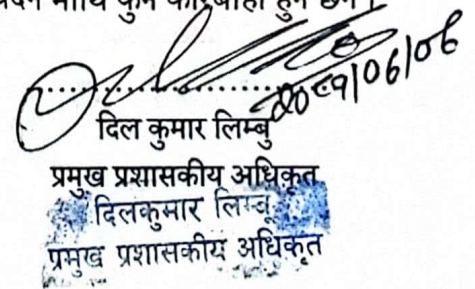 माथि कुनै कारबाही हुने छैन।
२०८१/०६/०६
दिल कुमार लिम्बु
प्रमुख प्रशासकीय अधिकृत
दिलकुमार लिम्बू
प्रमुख प्रशासकीय अधिकृत